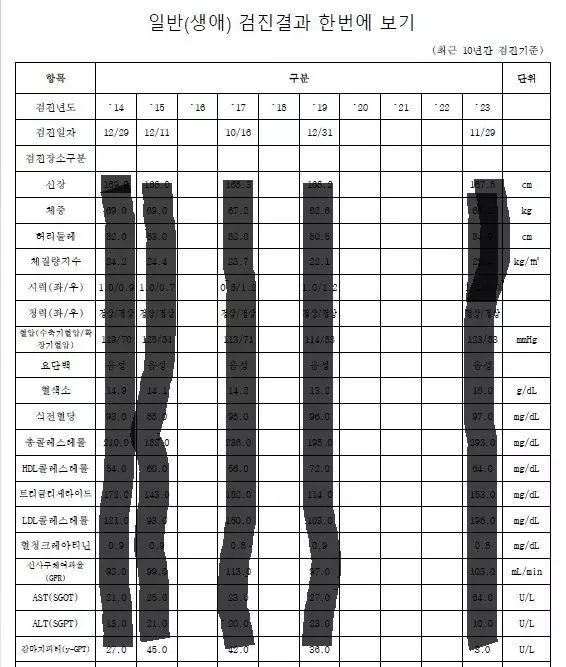 일반(생애) 검진결과 한번에 보기
(최근 10년간 검진기준)
항목 구분 단위
검진년도 `14 `15 `16 `17 `18 `19 `20 `21 `22 `23
검진일자 12/29 12/11 10/16 12/31 11/29
검진장소구분
신장 cm
체중 69.0 69.0 67.2 62.6 kg
허리둘레 82.0 83.0 82.0 80.5 cm
체질량지수 24.2 24.4 23.7 22.1 kg/m²
시력(좌/우) 1.0/0.9 1.0/0.7 1.0/1.2
청력(좌/우) 정상/정상 정상/정상 정상/정상 정상/정상 정상/정상
혈압(수축기혈압/확장기혈압) 119/70 125/84 113/71 114/83 123/83 mmHg
요단백 음성 음성 음성 음성 음성
혈색소 14.9 14.1 14.2 13.2 g/dL
식전혈당 93.0 95.0 96.0 97.0 mg/dL
총콜레스테롤 210.0 236.0 198.0 293.0 mg/dL
HDL콜레스테롤 54.0 60.0 56.0 72.0 64.0 mg/dL
트리글리세라이드 172.0 143.0 152.0 114.0 153.0 mg/dL
LDL콜레스테롤 121.0 93.0 150.0 103.0 198.0 mg/dL
혈청크레아티닌 0.9 0.9 0.8 0.9 0.8 mg/dL
신사구체여과율(GFR) 93.0 99.0 113.0 97.0 103.0 mL/min
AST(SGOT) 21.0 23.0 27.0 64.0 U/L
ALT(SGPT) 13.0 21.0 20.0 23.0 U/L
감마지피티(y-GPT) 27.0 45.0 42.0 36.0 U/L